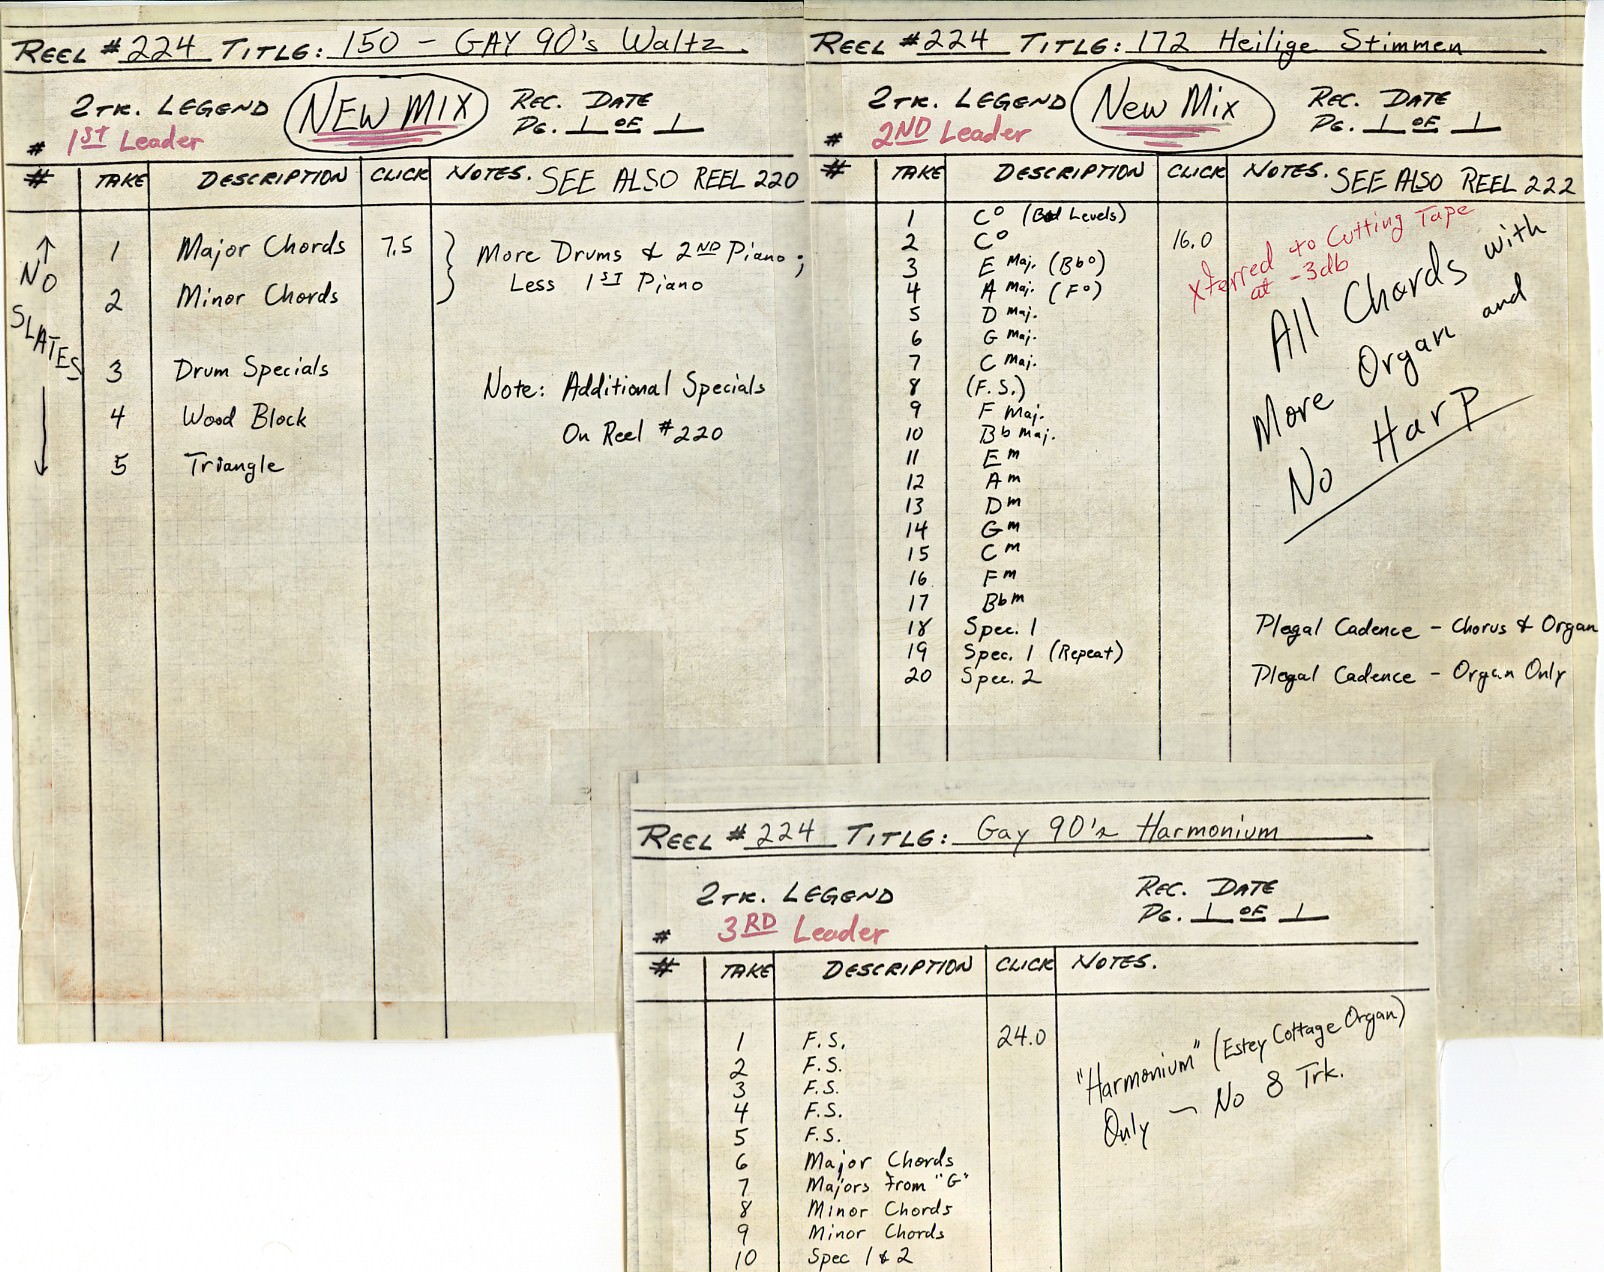 REEL # 224 TITLE: 150 - GAY 90's Waltz
2TK. LEGEND NEW MIX REC. DATE
# 1ST Leader PG. 1 OF 1
# TAKE DESCRIPTION CLICK NOTES. SEE ALSO REEL 220
NO SLATES
1 Major Chords 7.5 More Drums & 2ND Piano;
Less 1ST Piano
2 Minor Chords
3 Drum Specials
Note: Additional Specials
4 Wood Block
On Reel #220
5 Triangle
REEL # 224 TITLE: 172 Heilige Stimmen
2TK. LEGEND New Mix REC. DATE
# 2ND Leader PG. 1 OF 1
# TAKE DESCRIPTION CLICK NOTES. SEE ALSO REEL 222
1 C° (Bad Levels)
2 C° 16.0
xferred to Cutting Tape
at -3db
3 E Maj. (Bb°)
4 A Maj. (F°)
5 D Maj.
6 G Maj.
7 C Maj.
8 (F.S.)
9 F Maj.
10 Bb Maj.
11 Em
12 Am
13 Dm
14 Gm
15 Cm
16 Fm
17 Bbm
All Chords with
More Organ and
No Harp
18 Spec. 1 Plegal Cadence - Chorus & Organ
19 Spec. 1 (Repeat)
20 Spec. 2 Plegal Cadence - Organ Only
REEL # 224 TITLE: Gay 90's Harmonium
2TK. LEGEND REC. DATE
# 3RD Leader PG. 1 OF 1
# TAKE DESCRIPTION CLICK NOTES.
1 F.S. 24.0
2 F.S.
3 F.S.
4 F.S.
5 F.S.
"Harmonium" (Estey Cottage Organ)
Only - No 8 Trk.
6 Major Chords
7 Majors from "G"
8 Minor Chords
9 Minor Chords
10 Spec 1 & 2